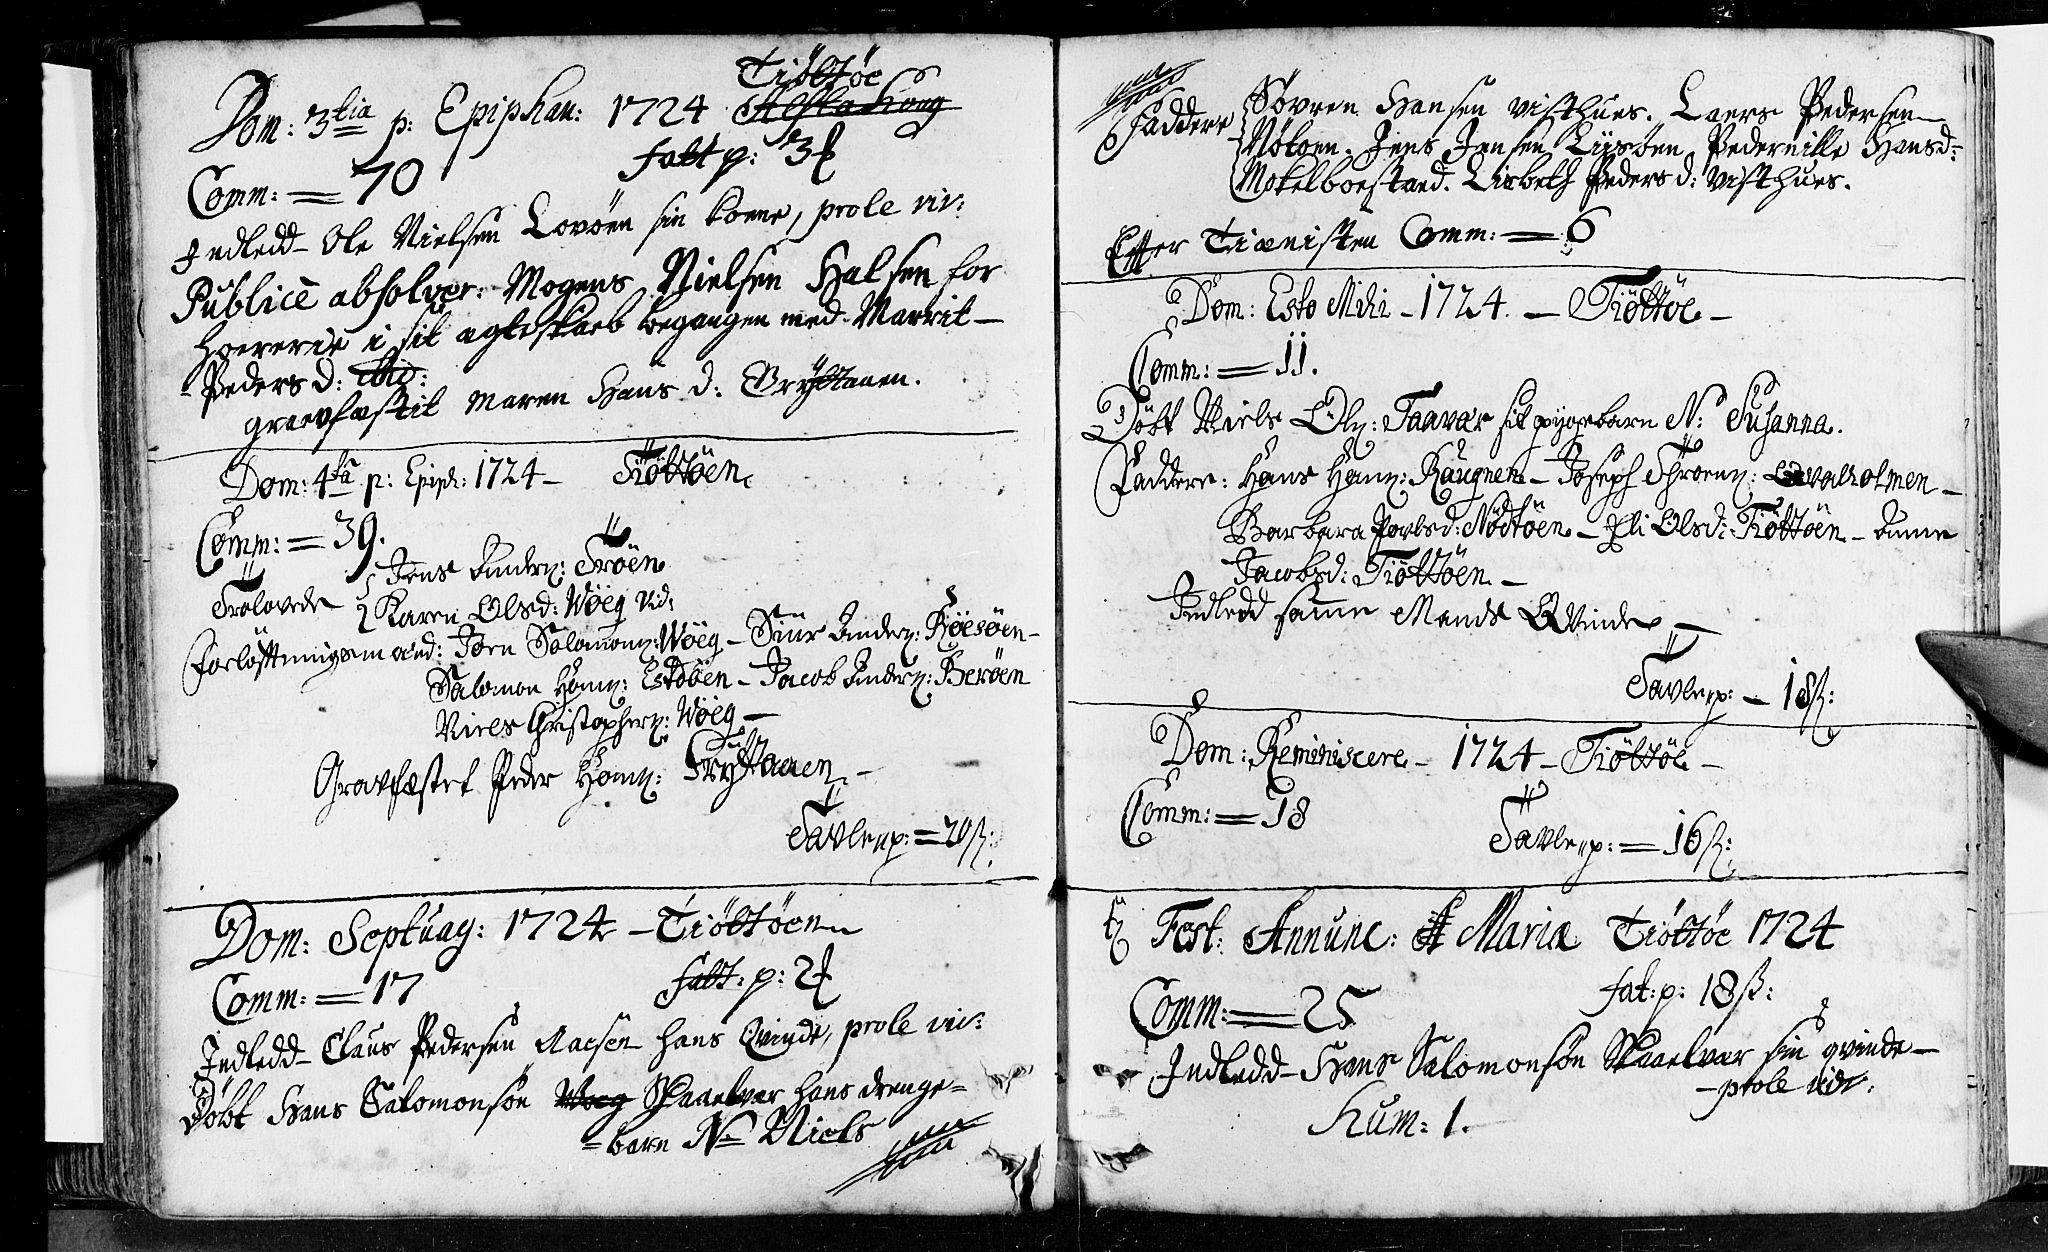 Tiöttöe
Dom: 3tia p: Epiphan: 1724 Alstahoug
Comm: = 70 fatt p: 3
Indledd - Ole Nielsen Lovöen sin koene, prole viv:
Publicè absolver: Mogens Nielsen Halsen for
hoererie i sit agteskaeb begangen med Marrit -
Peders d: ibid:
graevfæstit Maren Hans d: Gryttaaen.
Dom: 4ta p: Epiph: 1724 - Tiöttöen
Comm: = 39.
Jens Anders: Tröen
Trolovede
Karen Olsd: Wöeg Vid:
Forlofftningsmænd: Jörn Salomons: Wöeg - Siur Anders: Röesöen -
Salomon Hans: - Jacob Anders: Beröen
Niels Christophers: Wöeg -
Gravfæstet Peder Hans: Gryttaaen -
Tavlep: = 20 ß:
Dom: Septuag: 1724 - Tiöttöen
Comm: = 17 fatt: p: 2
Indledd - Claus Pedersen hans Qvinde, prole viv:
Döbt Hans Salomonsön Woeg Skaaelvær hans drenge=
= barn N: Niels
Faddere Sövren Hansen Visthues. Laers Pedersen
Nötoen. Jens Jensen Pedernille Hansd:
Mokelboestaed. Lisbeth Peders d: Visthues.
Effter Tienisten Comm: = 6
Dom: Esto Mihi - 1724. - Tiöttöe -
Comm: = 11.
Döbt Niels Ols: Taavær sit pygebarn N: Susanna.
Faddere: Hans Hans: Raugnen - Joseph Throens: Qvalholmen -
Barbara Povlsd: Nödtöen - Eli Olsd: Tiöttöen - Anne
Jacobsd: Tiöttöen -
Indledd samme Mands Qvinde -
Tavlep: - 18 ß:
Dom: Reminiscere - 1724 - Tiöttöe -
Comm: = 18 Tavlep: = 16 ß:
Fest: Annunc: Mariæ Tiöttöe 1724
Comm: = 25 fat: p: 18 ß:
Indledd - Hans Salomonsön Skaaelvær sin qvinde -
- prole viv:
Hum: 1.